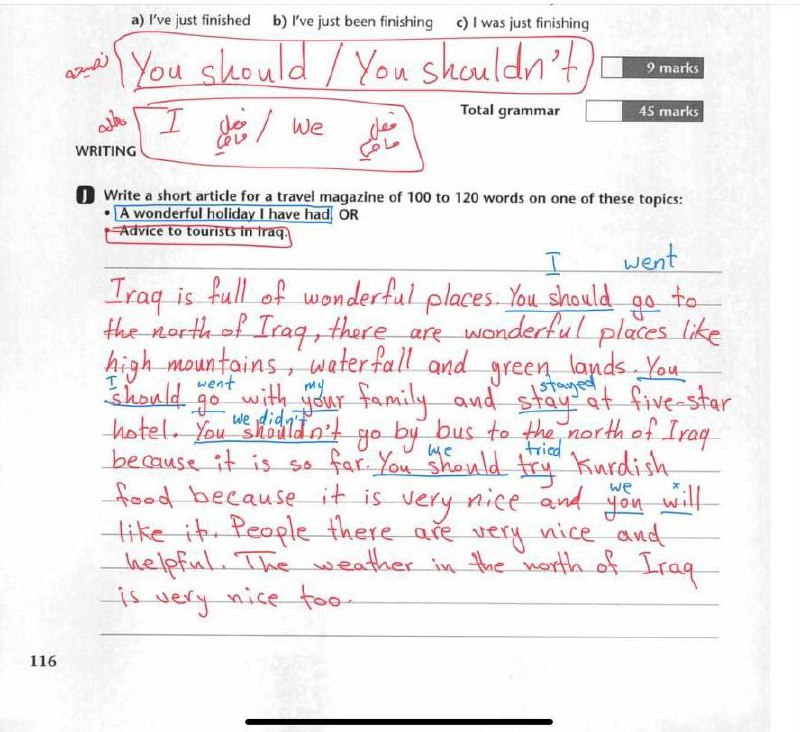 a) I've just finished b) I've just been finishing c) I was just finishing
نصيحة You should / You shouldn't
9 marks
I فعل ماضي / we فعل ماضي
Total grammar 45 marks
WRITING
J Write a short article for a travel magazine of 100 to 120 words on one of these topics:
• A wonderful holiday I have had OR
• Advice to tourists in Iraq.
I went
Iraq is full of wonderful places. You should go to
the north of Iraq, there are wonderful places like
high mountains, waterfall and green lands. You
I went my stayed
should go with your family and stay at five-star
we didn't
hotel. You shouldn't go by bus to the north of Iraq
we tried
because it is so far. You should try Kurdish
we x
food because it is very nice and you will
like it. People there are very nice and
helpful. The weather in the north of Iraq
is very nice too.
116